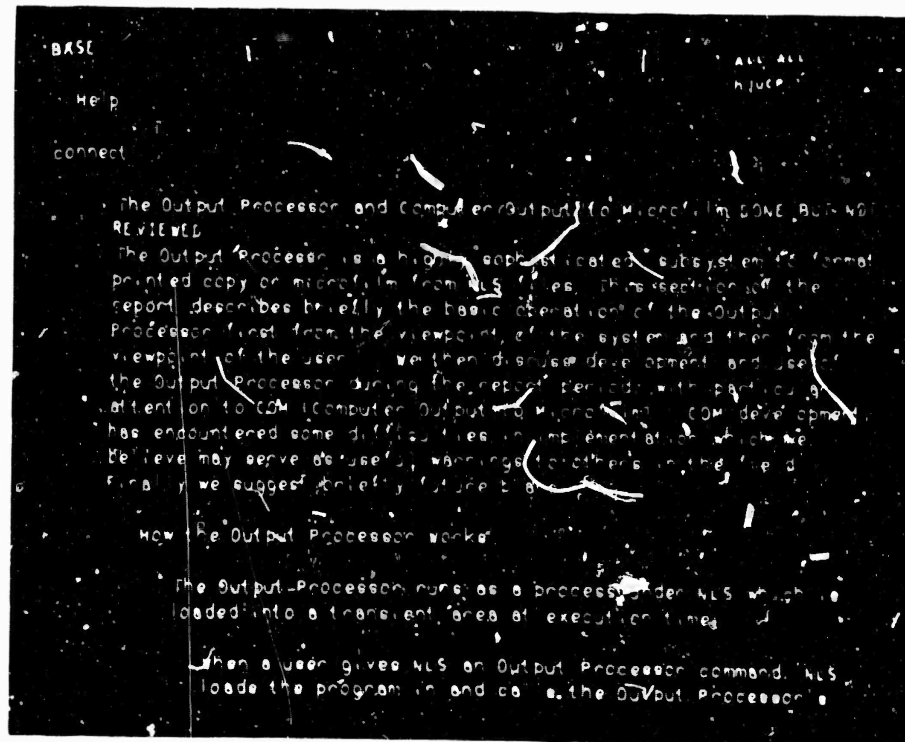 BASE
ALL ALL
hjucp
Help
connect
The Output Processor and Computer Output to Microfilm DONE BUT NOT
REVIEWED
The Output Processor is a highly sophisticated subsystem to format
printed copy or microfilm from NLS files. This section of the
report describes briefly the basic operation of the Output
Processor first from the viewpoint of the system and then from the
viewpoint of the user. We then discuss development and use of
the Output Processor during the report period, with particular
attention to COM (Computer Output to Microfilm). COM development
has encountered some difficulties in implementation which we
believe may serve as useful warnings to others in the field.
Finally we suggest briefly future
How the Output Processor Works
The Output Processor runs as a process under NLS which is
loaded into a transient area at execution time.
When a user gives NLS an Output Processor command, NLS
loads the program in and calls the Output Processor's